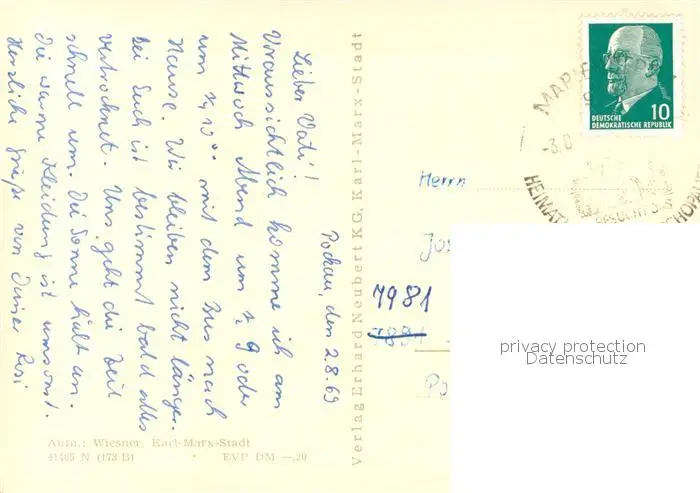 Pockau, den 2.8.69
Lieber Vati!
Voraussichtlich komme ich am
Mittwoch Abend um ½ 9 oder
um ½ 10 mit dem Bus nach
Hause. Wir bleiben nicht länger.
Bei Euch ist bestimmt bald alles
vertrocknet. Uns geht die Zeit
schnell um. Die Sonne hält an.
Die warme Kleidung ist umsonst.
Herzliche Grüße von Deiner Rosi
Verlag Erhard Neubert KG, Karl-Marx-Stadt
Aufn.: Wiesner, Karl-Marx-Stadt
41465 N (173 B) • EVP DM —,20
10
DEUTSCHE
DEMOKRATISCHE REPUBLIK
MARIENBERG
-3.8
HEIMAT
Herrn
7981
privacy protection
Datenschutz